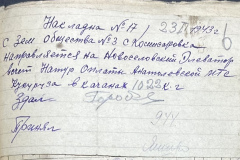 Накладна № 17 23/I 1943 г
6
С Зем Общества № 3 с Кошаровка
направляется на Новоселовский Элеватор
Натур Оплати Анатоловской МТС
кукуруза в качанах 1023 кг
Здал
Принял